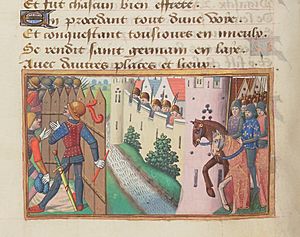 Et fut chascun bien efforce
En procedant tout dune voix
Et conquestant tousiours en mieulx
Se rendit saint germain en laye
Avec dautres places et lieux